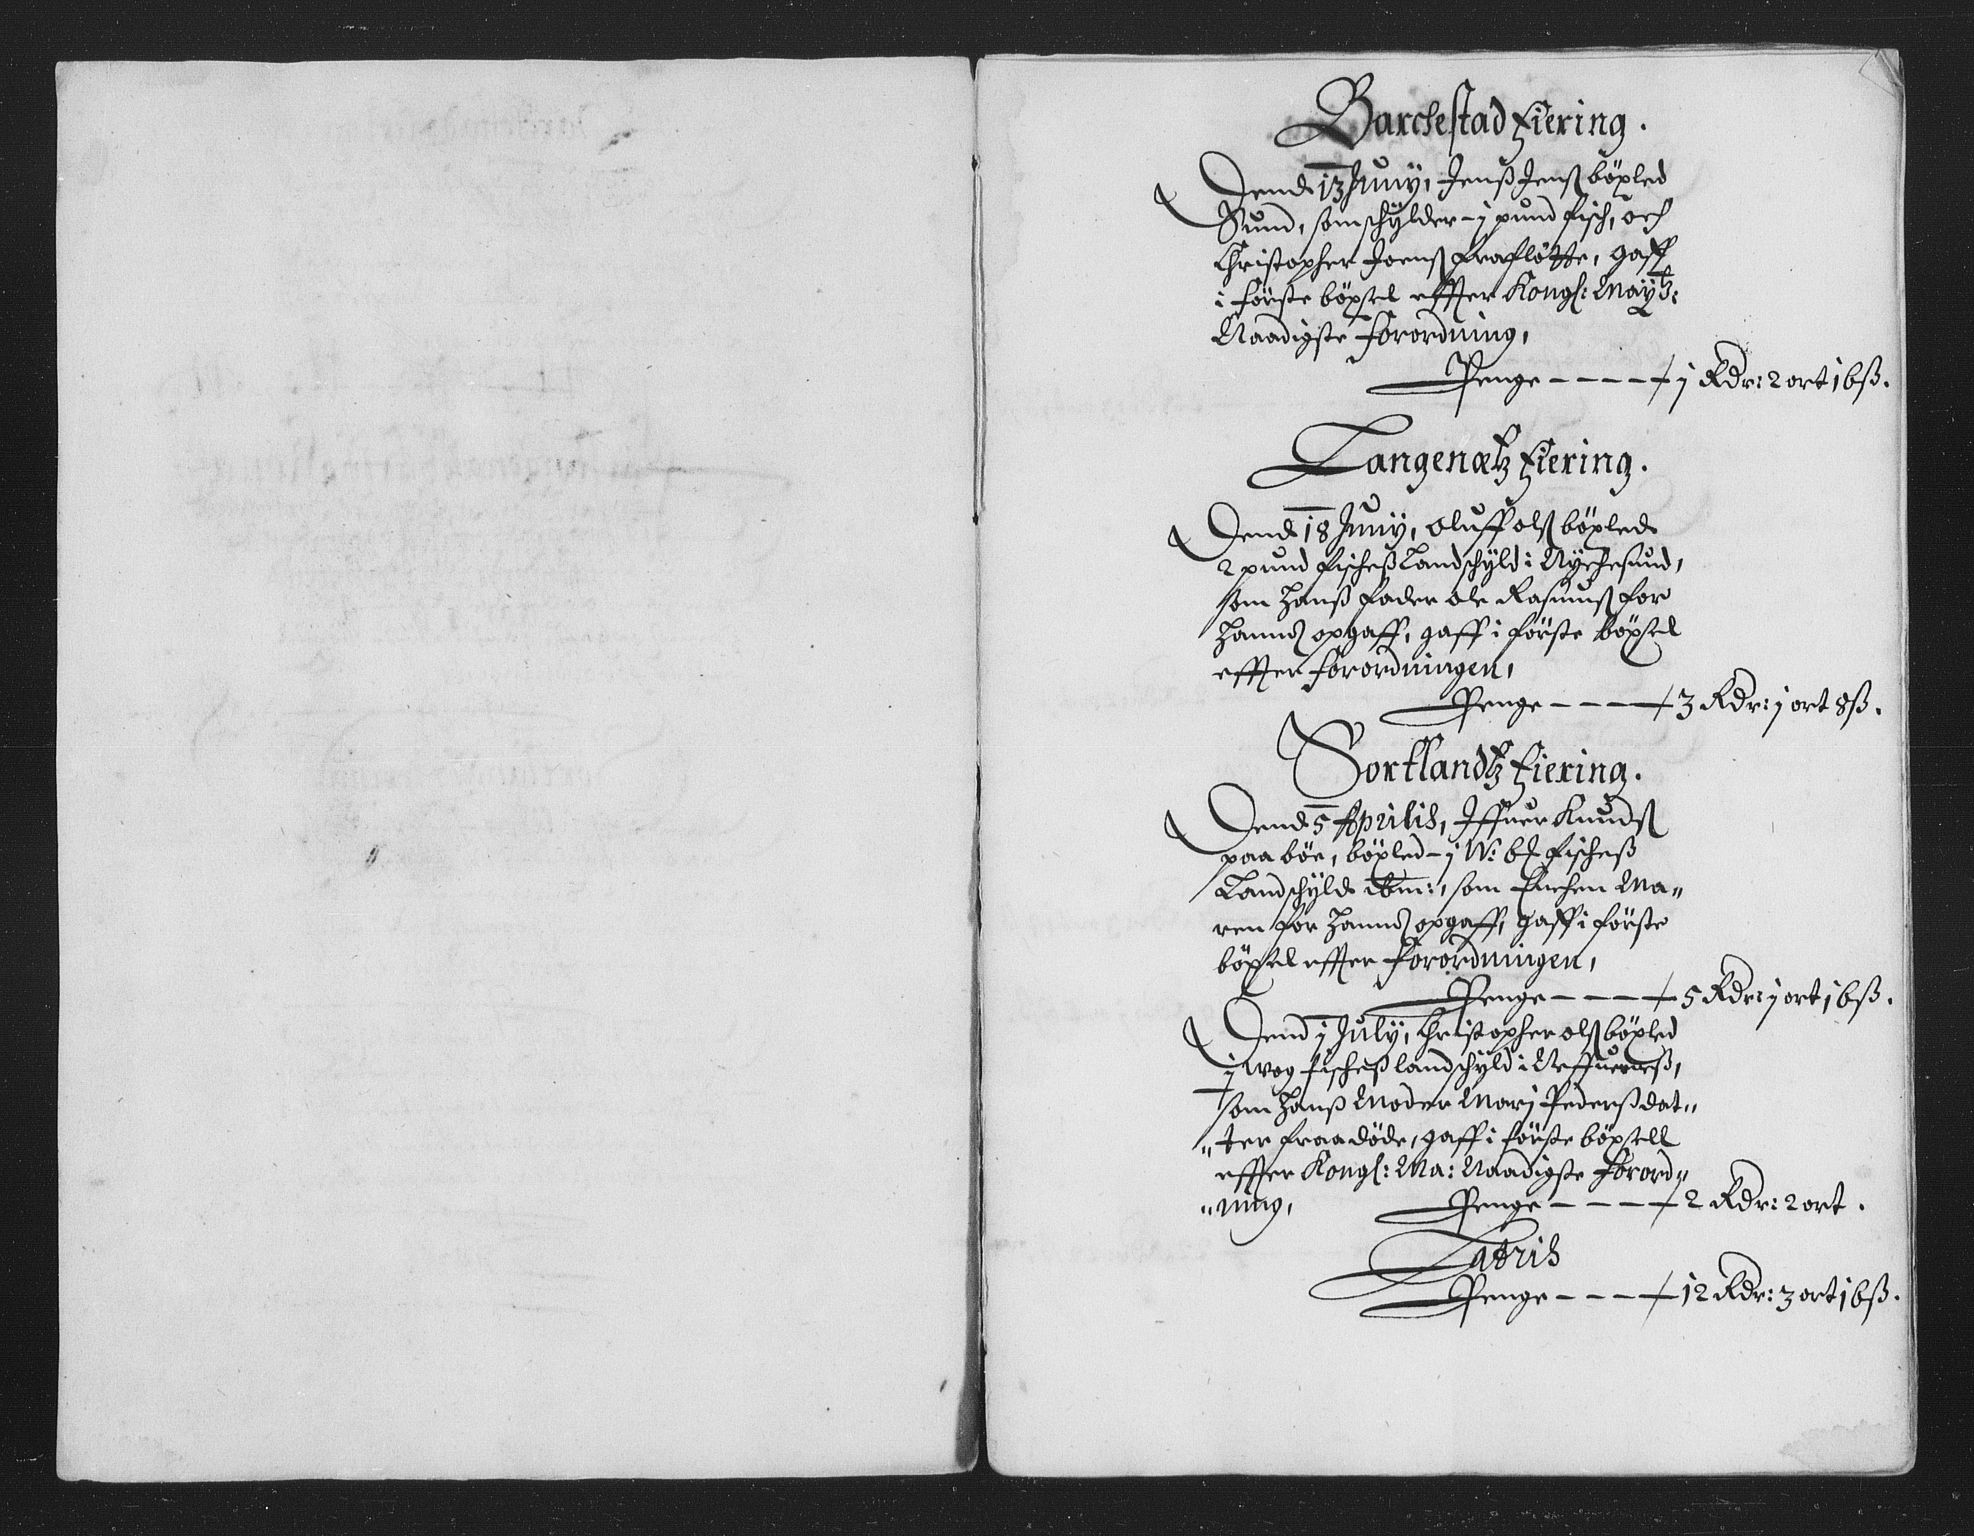 Barchestad Fiering.
Dend 13 Juny, Jenß Jenß böxled
Sund, som schylder - j pund fisch, och
Christopher Joenß frafløtte, gaff
i förste böxsel effter Kongl: Mayts:
Naadigste forordning,
Penge - - - - j Rdr: 2 ort 16 ß.
Langenæß Fiering.
Dend 18 Juny, Oluff Olß böxlede
2 pund fischeß Landschyld i Nychesund,
som hanß fader Ole Rasmuß for
hannd opgaff, gaff i förste böxsel
effter forordningen,
Penge - - - - 3 Rdr: j ort 8 ß.
Sortlandtz Fiering.
Dend 5 Aprilis, Iffuer Knudß
paa böe, böxled - j W: 6 fischeß
Landschyld ibm:, som Enchen Ma-
ren for hannd opgaff, gaff i förste
böxsel effter forordningen,
Penge - - - - 5 Rdr: j ort 16 ß.
Dend j July, Christopher Olß böxled
j wog fischeß landschyld i
som hanß Moder Marj Pederßdat-
-ter fraa döde, gaff i förste böxsell
effter Kongl: Ma: Naadigste forord-
-ning,
Penge - - - - 2 Rdr: 2 ort.
Lateris
Penge - - - - 12 Rdr: 3 ort 16 ß.